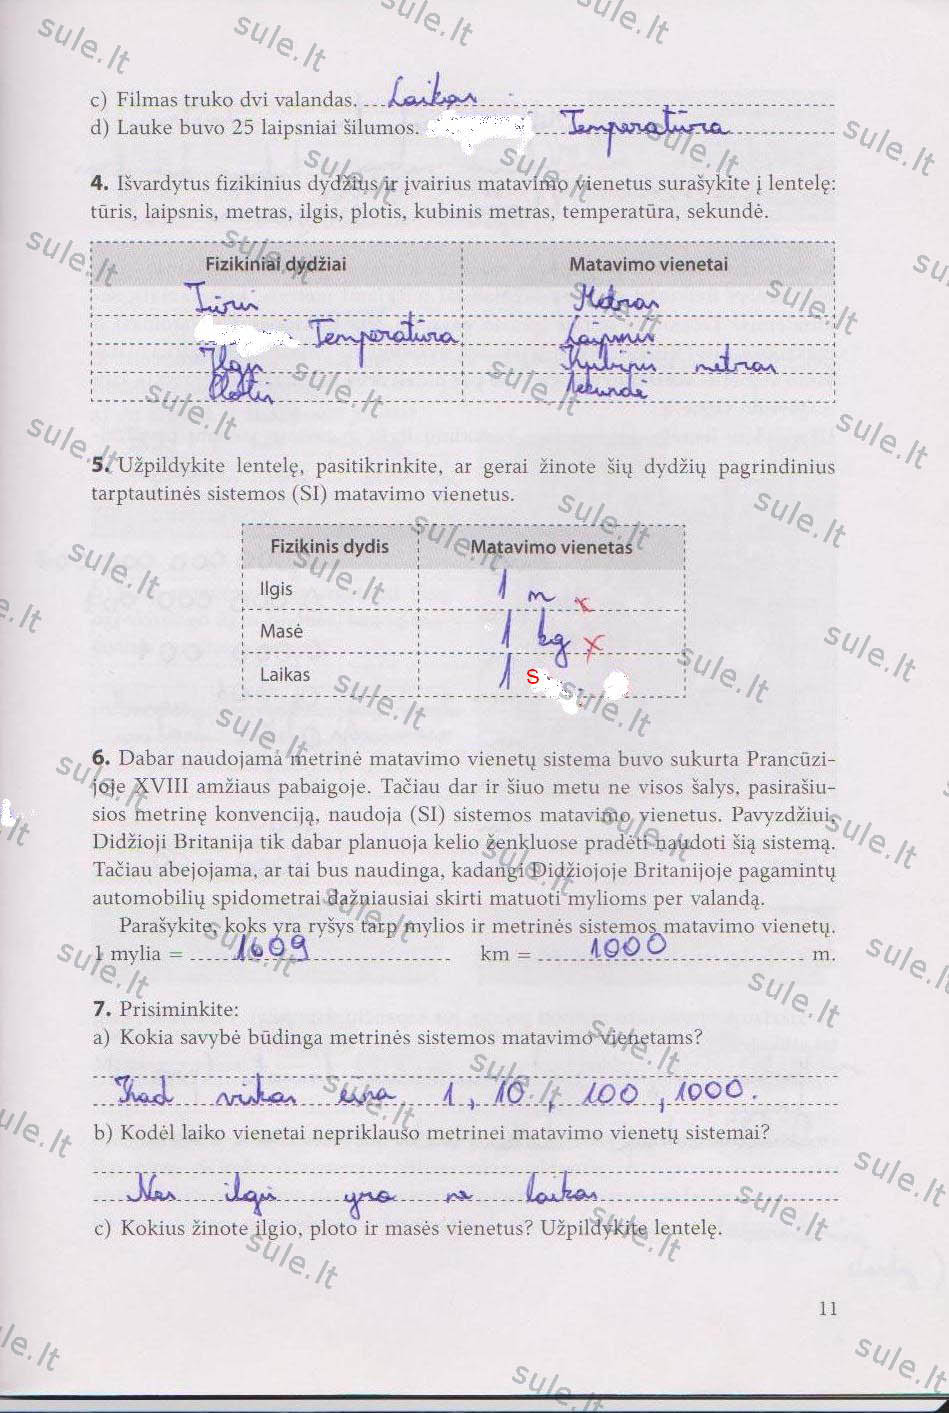 c) Filmas truko dvi valandas. Laikas
d) Lauke buvo 25 laipsniai šilumos. Temperatūra
4. Išvardytus fizikinius dydžius ir įvairius matavimo vienetus surašykite į lentelę:
tūris, laipsnis, metras, ilgis, plotis, kubinis metras, temperatūra, sekundė.
Fizikiniai dydžiai Matavimo vienetai
Tūris Metras
Temperatūra Laipsnis
Ilgis Kubinis metras
Plotis sekundė
5. Užpildykite lentelę, pasitikrinkite, ar gerai žinote šių dydžių pagrindinius
tarptautinės sistemos (SI) matavimo vienetus.
Fizikinis dydis Matavimo vienetas
Ilgis 1 m
Masė 1 kg
Laikas 1 s
6. Dabar naudojama metrinė matavimo vienetų sistema buvo sukurta Prancūzi-
joje XVIII amžiaus pabaigoje. Tačiau dar ir šiuo metu ne visos šalys, pasirašiu-
sios metrinę konvenciją, naudoja (SI) sistemos matavimo vienetus. Pavyzdžiui,
Didžioji Britanija tik dabar planuoja kelio ženkluose pradėti naudoti šią sistemą.
Tačiau abejojama, ar tai bus naudinga, kadangi Didžiojoje Britanijoje pagamintų
automobilių spidometrai dažniausiai skirti matuoti mylioms per valandą.
Parašykite, koks yra ryšys tarp mylios ir metrinės sistemos matavimo vienetų.
1 mylia = 1609 km = 1000 m.
7. Prisiminkite:
a) Kokia savybė būdinga metrinės sistemos matavimo vienetams?
Kad viskas eina 1, 10, 100, 1000.
b) Kodėl laiko vienetai nepriklauso metrinei matavimo vienetų sistemai?
Nes ilgis yra ne laikas
c) Kokius žinote ilgio, ploto ir masės vienetus? Užpildykite lentelę.
11
sule.lt